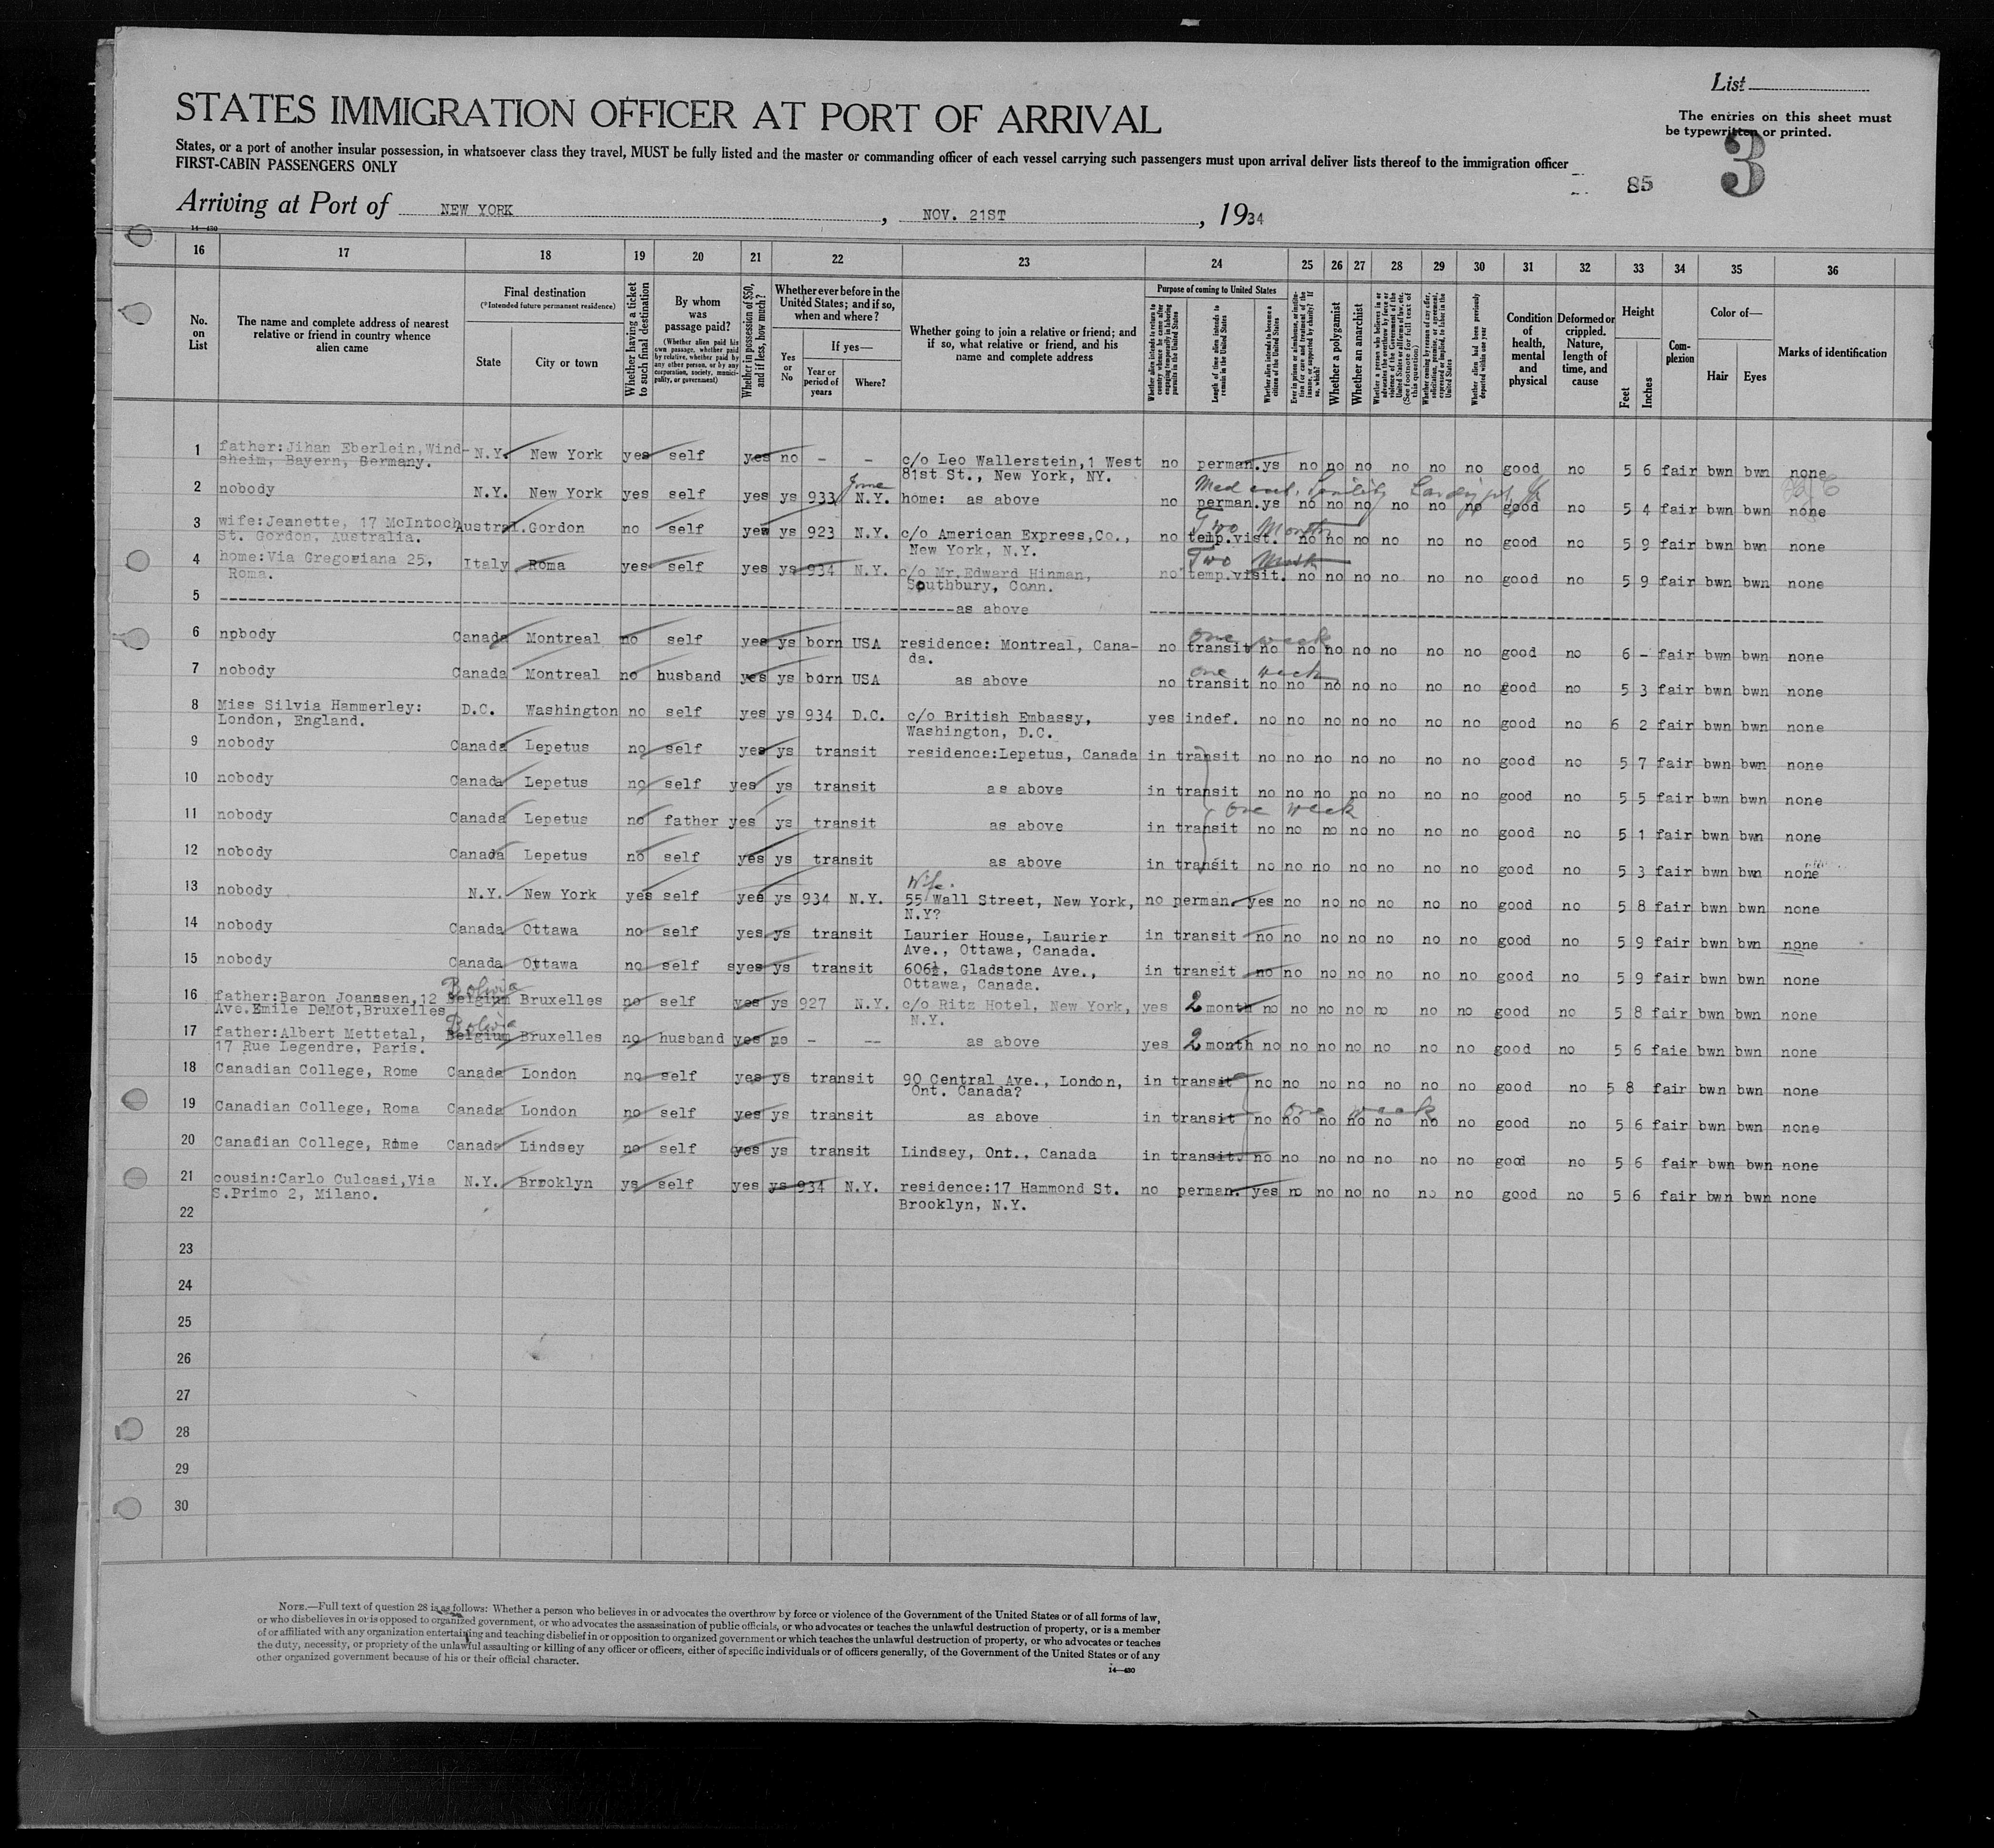 List
STATES IMMIGRATION OFFICER AT PORT OF ARRIVAL
The entries on this sheet must
be typewritten or printed.
States, or a port of another insular possession, in whatsoever class they travel, MUST be fully listed and the master or commanding officer of each vessel carrying such passengers must upon arrival deliver lists thereof to the immigration officer
FIRST-CABIN PASSENGERS ONLY
85 3
Arriving at Port of NEW YORK, NOV. 21ST, 1934
14—430
16 17 18 19 20 21 22 23 24 25 26 27 28 29 30 31 32 33 34 35 36
No. on List
The name and complete address of nearest relative or friend in country whence alien came
Final destination
(*Intended future permanent residence)
State
City or town
Whether having a ticket to such final destination
By whom was passage paid?
(Whether alien paid his own passage, whether paid by relative, whether paid by any other person, or by any corporation, society, municipality, or government)
Whether in possession of $50, and if less, how much?
Whether ever before in the United States; and if so, when and where?
Yes or No
If yes—
Year or period of years
Where?
Whether going to join a relative or friend; and if so, what relative or friend, and his name and complete address
Purpose of coming to United States
Whether alien intends to return to country whence he came after engaging temporarily in laboring pursuits in the United States
Length of time alien intends to remain in the United States
Whether alien intends to become a citizen of the United States
Ever in prison or almshouse, or institution for care and treatment of the insane, or supported by charity? If so, which?
Whether a polygamist
Whether an anarchist
Whether a person who believes in or advocates the overthrow by force or violence of the Government of the United States or all forms of law, etc. (See footnote for full text of this question)
Whether coming by reason of any offer, solicitation, promise, or agreement, expressed or implied, to labor in the United States
Whether alien had been previously deported within one year
Condition of health, mental and physical
Deformed or crippled. Nature, length of time, and cause
Height
Feet
Inches
Complexion
Color of—
Hair
Eyes
Marks of identification
1 father:Jihan Eberlein,Wind- N.Y. New York yes self yes no - - c/o Leo Wallerstein,1 West no perman. ys no no no no no no good no 5 6 fair bwn bwn none
sheim, Bayern, Germany. 81st St., New York, NY.
2 nobody N.Y. New York yes self yes ys 933 N.Y. home: as above no perman. ys no no no no no no good no 5 4 fair bwn bwn none
3 wife:Jeannette, 17 McIntoch Austral. Gordon no self yes ys 923 N.Y. c/o American Express,Co., no temp.vist. no no no no no no good no 5 9 fair bwn bwn none
St. Gordon, Australia. New York, N.Y.
Two Months
4 home:Via Gregoriana 25, Italy Roma yes self yes ys 934 N.Y. c/o Mr.Edward Hinman, no temp.visit. no no no no no no good no 5 9 fair bwn bwn none
Roma. Southbury, Conn.
Two Month
5 as above
6 npbody Canada Montreal no self yes ys born USA residence: Montreal, Cana- no transit no no no no no no no good no 6 - fair bwn bwn none
da.
one week
7 nobody Canada Montreal no husband yes ys born USA as above no transit no no no no no no no good no 5 3 fair bwn bwn none
one week
8 Miss Silvia Hammerley: D.C. Washington no self yes ys 934 D.C. c/o British Embassy, yes indef. no no no no no no no good no 6 2 fair bwn bwn none
London, England. Washington, D.C.
9 nobody Canada Lepetus no self yes ys transit residence:Lepetus, Canada in transit no no no no no no no good no 5 7 fair bwn bwn none
10 nobody Canada Lepetus no self yes ys transit as above in transit no no no no no no no good no 5 5 fair bwn bwn none
one week
11 nobody Canada Lepetus no father yes ys transit as above in transit no no no no no no no good no 5 1 fair bwn bwn none
12 nobody Canada Lepetus no self yes ys transit as above in transit no no no no no no no good no 5 3 fair bwn bwn none
Wife.
13 nobody N.Y. New York yes self yes ys 934 N.Y. 55 Wall Street, New York, no perman. yes no no no no no no good no 5 8 fair bwn bwn none
N.Y?
14 nobody Canada Ottawa no self yes ys transit Laurier House, Laurier in transit no no no no no no no good no 5 9 fair bwn bwn none
Ave., Ottawa, Canada.
15 nobody Canada Ottawa no self syes ys transit 606½, Gladstone Ave., in transit no no no no no no no good no 5 9 fair bwn bwn none
Ottawa, Canada.
Bolivia
16 father:Baron Joannsen,12 Belgium Bruxelles no self yes ys 927 N.Y. c/o Ritz Hotel, New York, yes 2 month no no no no no no no good no 5 8 fair bwn bwn none
Ave.Emile DeMot,Bruxelles N.Y.
Bolivia
17 father:Albert Mettetal, Belgium Bruxelles no husband yes no - -- as above yes 2 month no no no no no no no good no 5 6 faie bwn bwn none
17 Rue Legendre, Paris.
18 Canadian College, Rome Canada London no self yes ys transit 90 Central Ave., London, in transit no no no no no no no good no 5 8 fair bwn bwn none
Ont. Canada?
one week
19 Canadian College, Roma Canada London no self yes ys transit as above in transit no no no no no no no good no 5 6 fair bwn bwn none
20 Canadian College, Rome Canada Lindsey no self yes ys transit Lindsey, Ont., Canada in transit. no no no no no no no good no 5 6 fair bwn bwn none
21 cousin:Carlo Culcasi,Via N.Y. Brooklyn ys self yes ys 934 N.Y. residence:17 Hammond St. no perman. yes no no no no no no good no 5 6 fair bwn bwn none
S.Primo 2, Milano. Brooklyn, N.Y.
22
23
24
25
26
27
28
29
30
NOTE.—Full text of question 28 is as follows: Whether a person who believes in or advocates the overthrow by force or violence of the Government of the United States or of all forms of law,
or who disbelieves in or is opposed to organized government, or who advocates the assassination of public officials, or who advocates or teaches the unlawful destruction of property, or is a member
of or affiliated with any organization entertaining and teaching disbelief in or opposition to organized government or which teaches the unlawful destruction of property, or who advocates or teaches
the duty, necessity, or propriety of the unlawful assaulting or killing of any officer or officers, either of specific individuals or of officers generally, of the Government of the United States or of any
other organized government because of his or their official character.
14—430